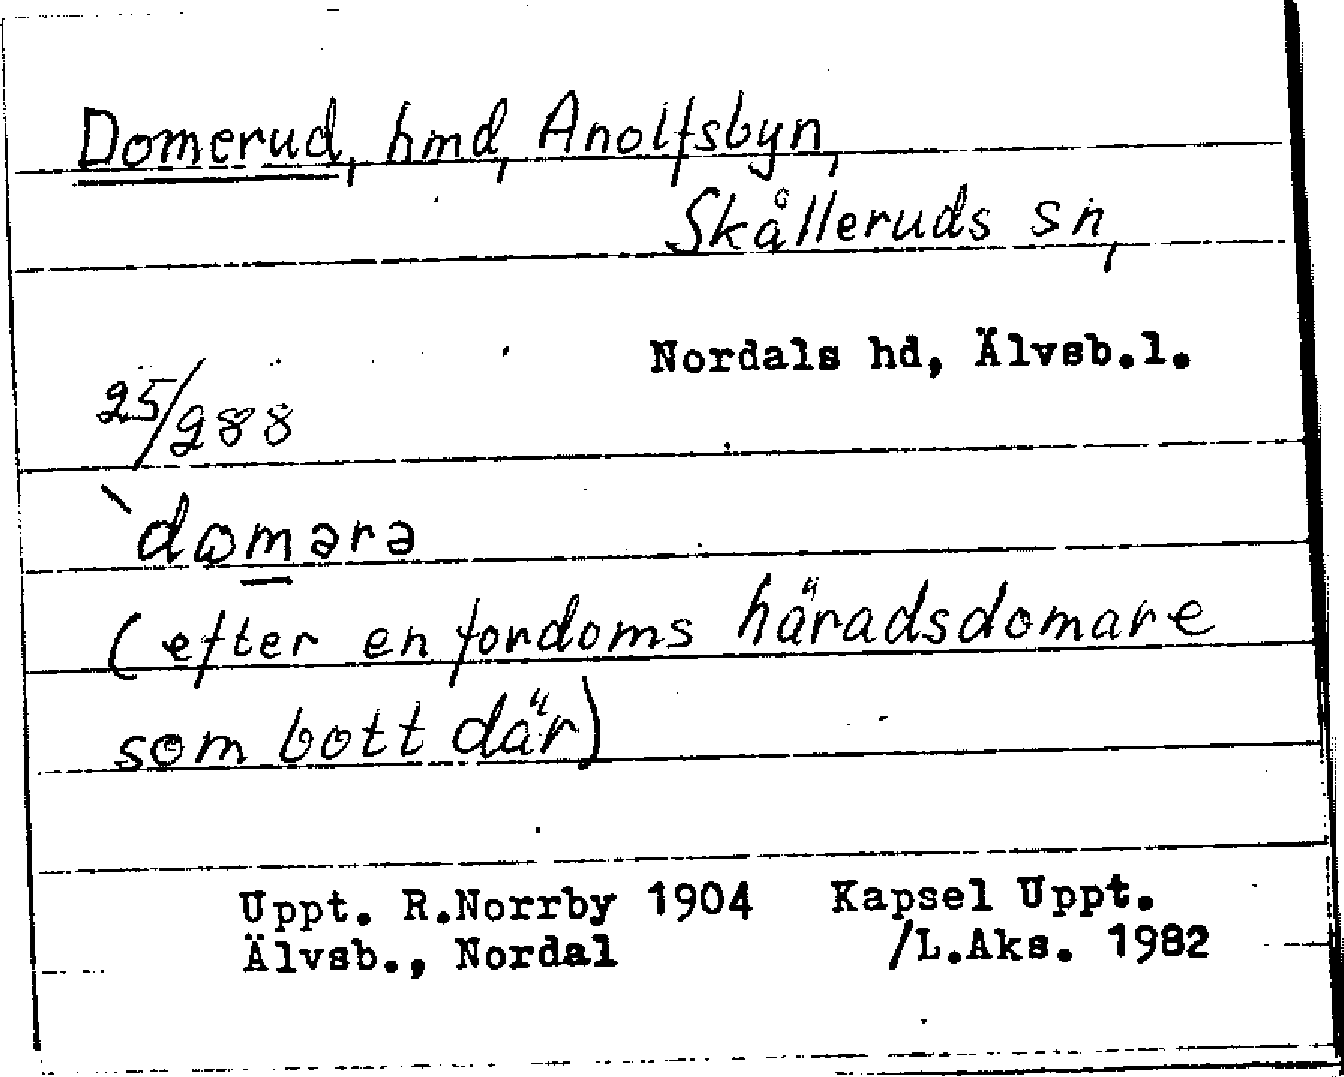 Domerud, hmd, Anolfsbyn,
Skålleruds sn,
Nordals hd, Älvsb.l.
25/288
`domərə
(efter en fordoms häradsdomare
som bott där)
Uppt. R.Norrby 1904 Kapsel Uppt.
Älvsb., Nordal /L.Aks. 1982